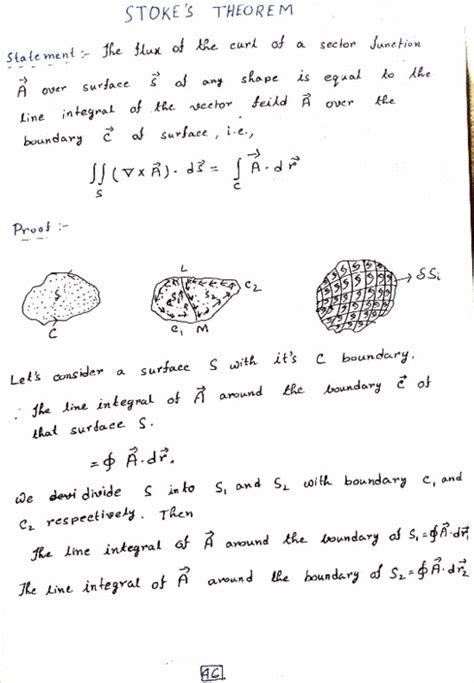 STOKE'S THEOREM
Statement :- The flux of the curl of a sector function
A⃗ over surface S⃗ of any shape is equal to the
line integral of the vector feild A⃗ over the
boundary C⃗ of surface, i.e.,
∬_S (∇×A⃗)·dS⃗ = ∫_C A⃗·dr⃗
Proof :-
S
C
L
S₁
S₂
C₂
C₁
M
δSᵢ
Let's consider a surface S with it's C boundary.
∴ The line integral of A⃗ around the boundary C⃗ of
that surface S.
= ∮ A⃗·dr⃗.
We devi divide S into S₁ and S₂ with boundary C₁ and
C₂ respectively. Then
The line integral of A⃗ around the boundary of S₁ = ∮A⃗·dr⃗₁
The line integral of A⃗ around the boundary of S₂ = ∮A⃗·dr⃗₂